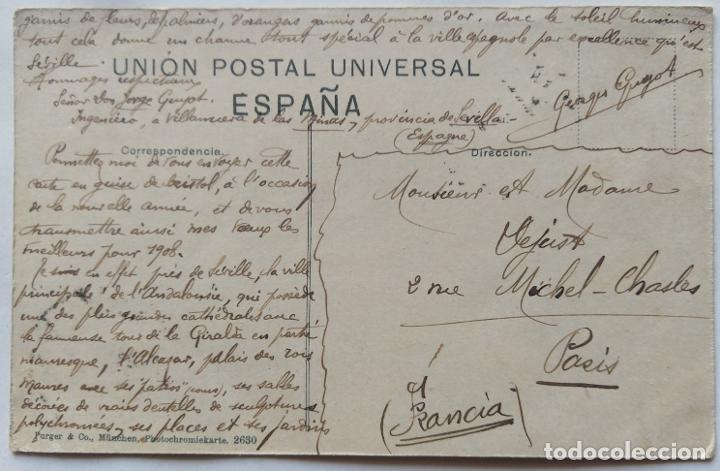 garnis de leurs, de palmiers, d'oranges garnis de pommes d'or. Avec le soleil lumineux
tout cela donne un charme tout spécial à la ville espagnole par excellence qu'est
Séville.
Hommages respectueux
UNIÓN POSTAL UNIVERSAL
ESPAÑA
Georges Guyot
Señor Don Jorge Guyot.
Ingeniero, a Villanueva de las Minas, provincia de Sevilla.
(Espagne)
Correspondencia.
Permettez moi de vous envoyer cette
carte en guise de bristol, à l'occasion
de la nouvelle année, et de vous
transmettre aussi mes vœux les
meilleurs pour 1908.
Je suis en effet près de Séville, la ville
principale de l'Andalousie, qui possède
une des plus grandes cathédrales avec
la fameuse tour de la Giralda en partie
mauresque, l'Alcazar, palais des rois
maures avec ses "patios" (cours), ses salles
décorées de vraies dentelles de sculptures
polychromées, ses places et ses jardins
Purger & Co., München, Photochromiekarte. 2630
Direccion.
Monsieur et Madame
Dejust
2 rue Michel-Chasles
Paris
(Francia)